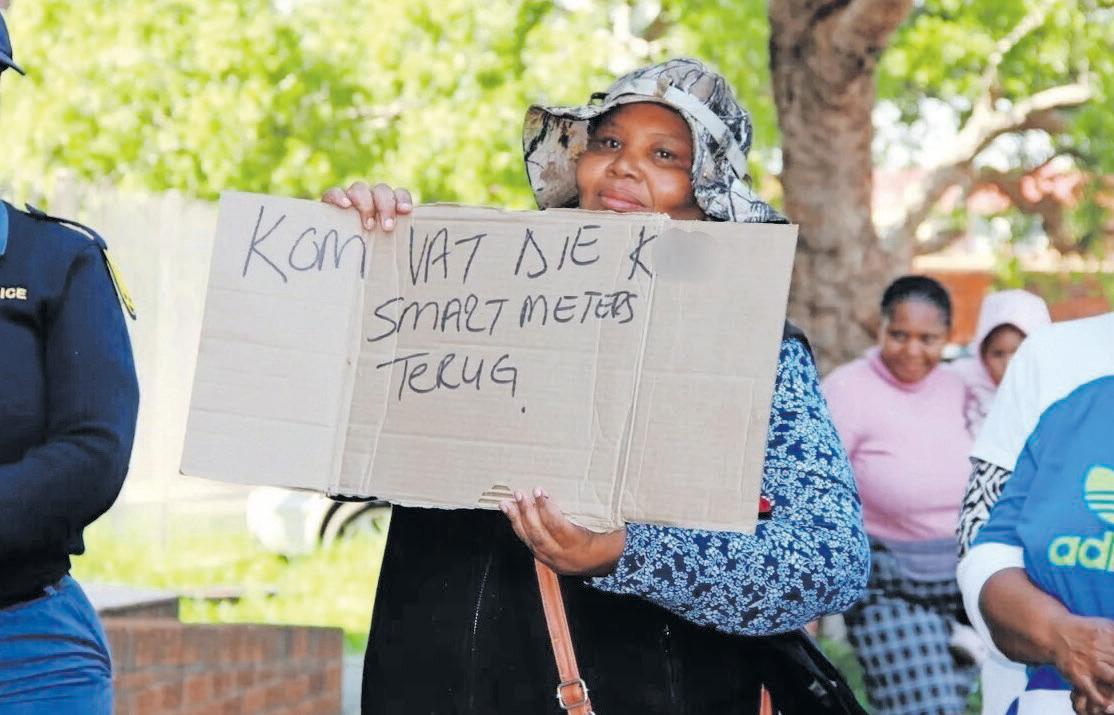 KOM VAT DIE K
SMART METERS
TERUG.
ICE
adi